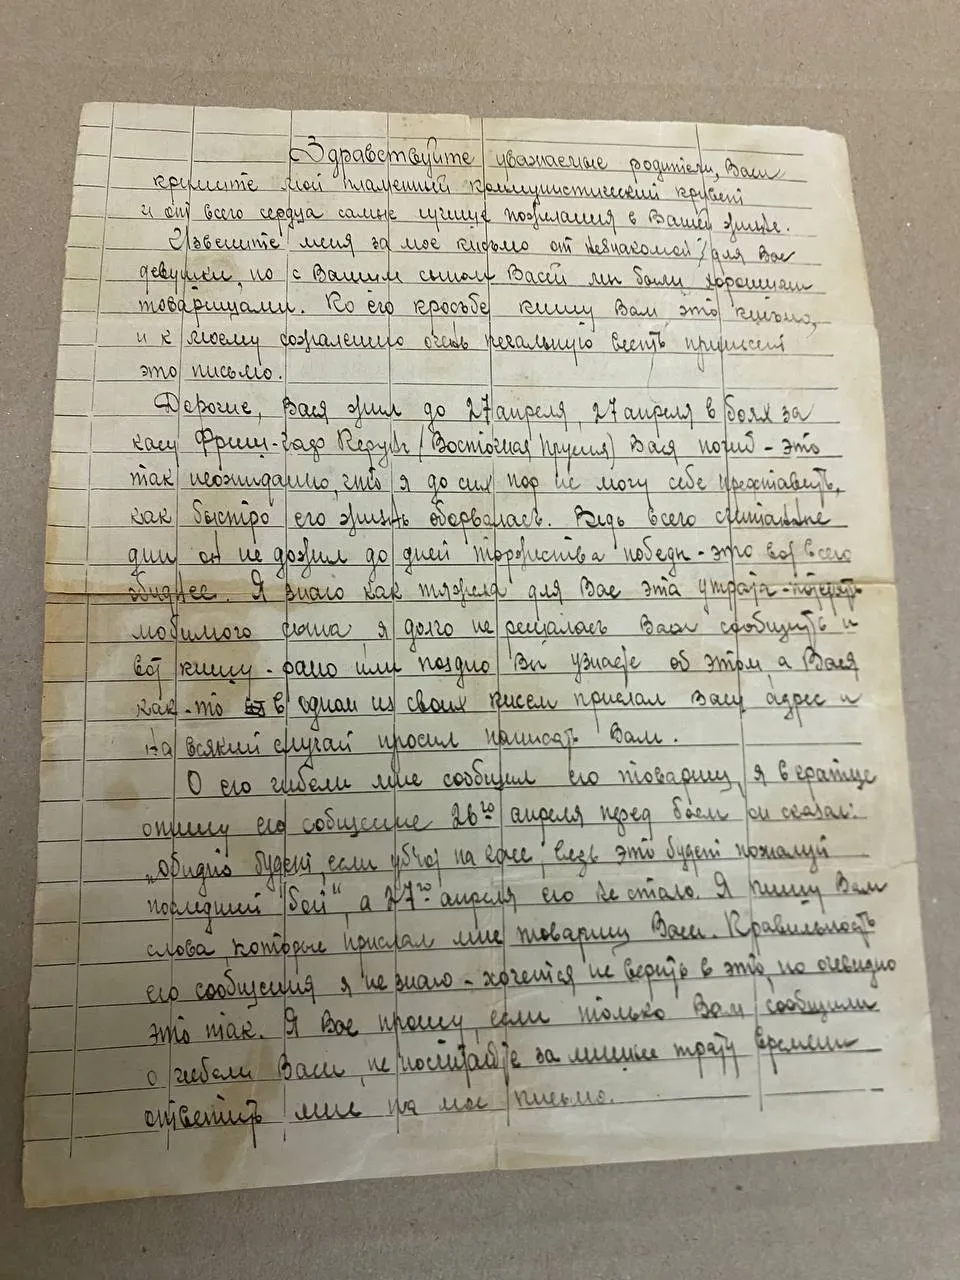 Здравствуйте уважаемые родители, Васи
примите мой пламенный коммунистический привет
и от всего сердца самые лучшие пожелания в Вашей жизни.
Извените меня за мое письмо от незнакомой для Вас
девушки, но с Вашим сыном Васей мы были хорошими
товарищами. По его просьбе пишу Вам это письмо,
и к моему сожалению очень печальную весть принесет
это письмо.
Дорогие, Вася жил до 27 апреля, 27 апреля в боях за
косу Фриш- (Восточная Пруссия) Вася погиб - это
так неожиданно, что я до сих пор не могу себе представить,
как быстро его жизнь оборвалась. Ведь всего считанные
дни он не дожил до дней торжества победы - это вот всего
обиднее. Я знаю как тяжела для Вас эта утрата - потерять
любимого сына я долго не решалась Вам сообщить и
вот пишу - рано или поздно Вы узнаете об этом а Вася
как-то в одном из своих писем прислал Ваш адрес и
на всякий случай просил написать Вам.
О его гибели мне сообщил его товарищ, я вкратце
опишу его сообщение 26го апреля перед боем он сказал:
„Обидно будет, если убьют на косе, ведь это будет пожалуй
последний бой", а 27го апреля его не стало. Я пишу Вам
слова которые прислал мне товарищ Васи. Правильность
его сообщения я не знаю - хочется не верить в это, но очевидно
это так. Я Вас прошу, если только Вам сообщили
о гибели Васи, не посчитайте за лишнее трату времени
ответить мне на мое письмо.